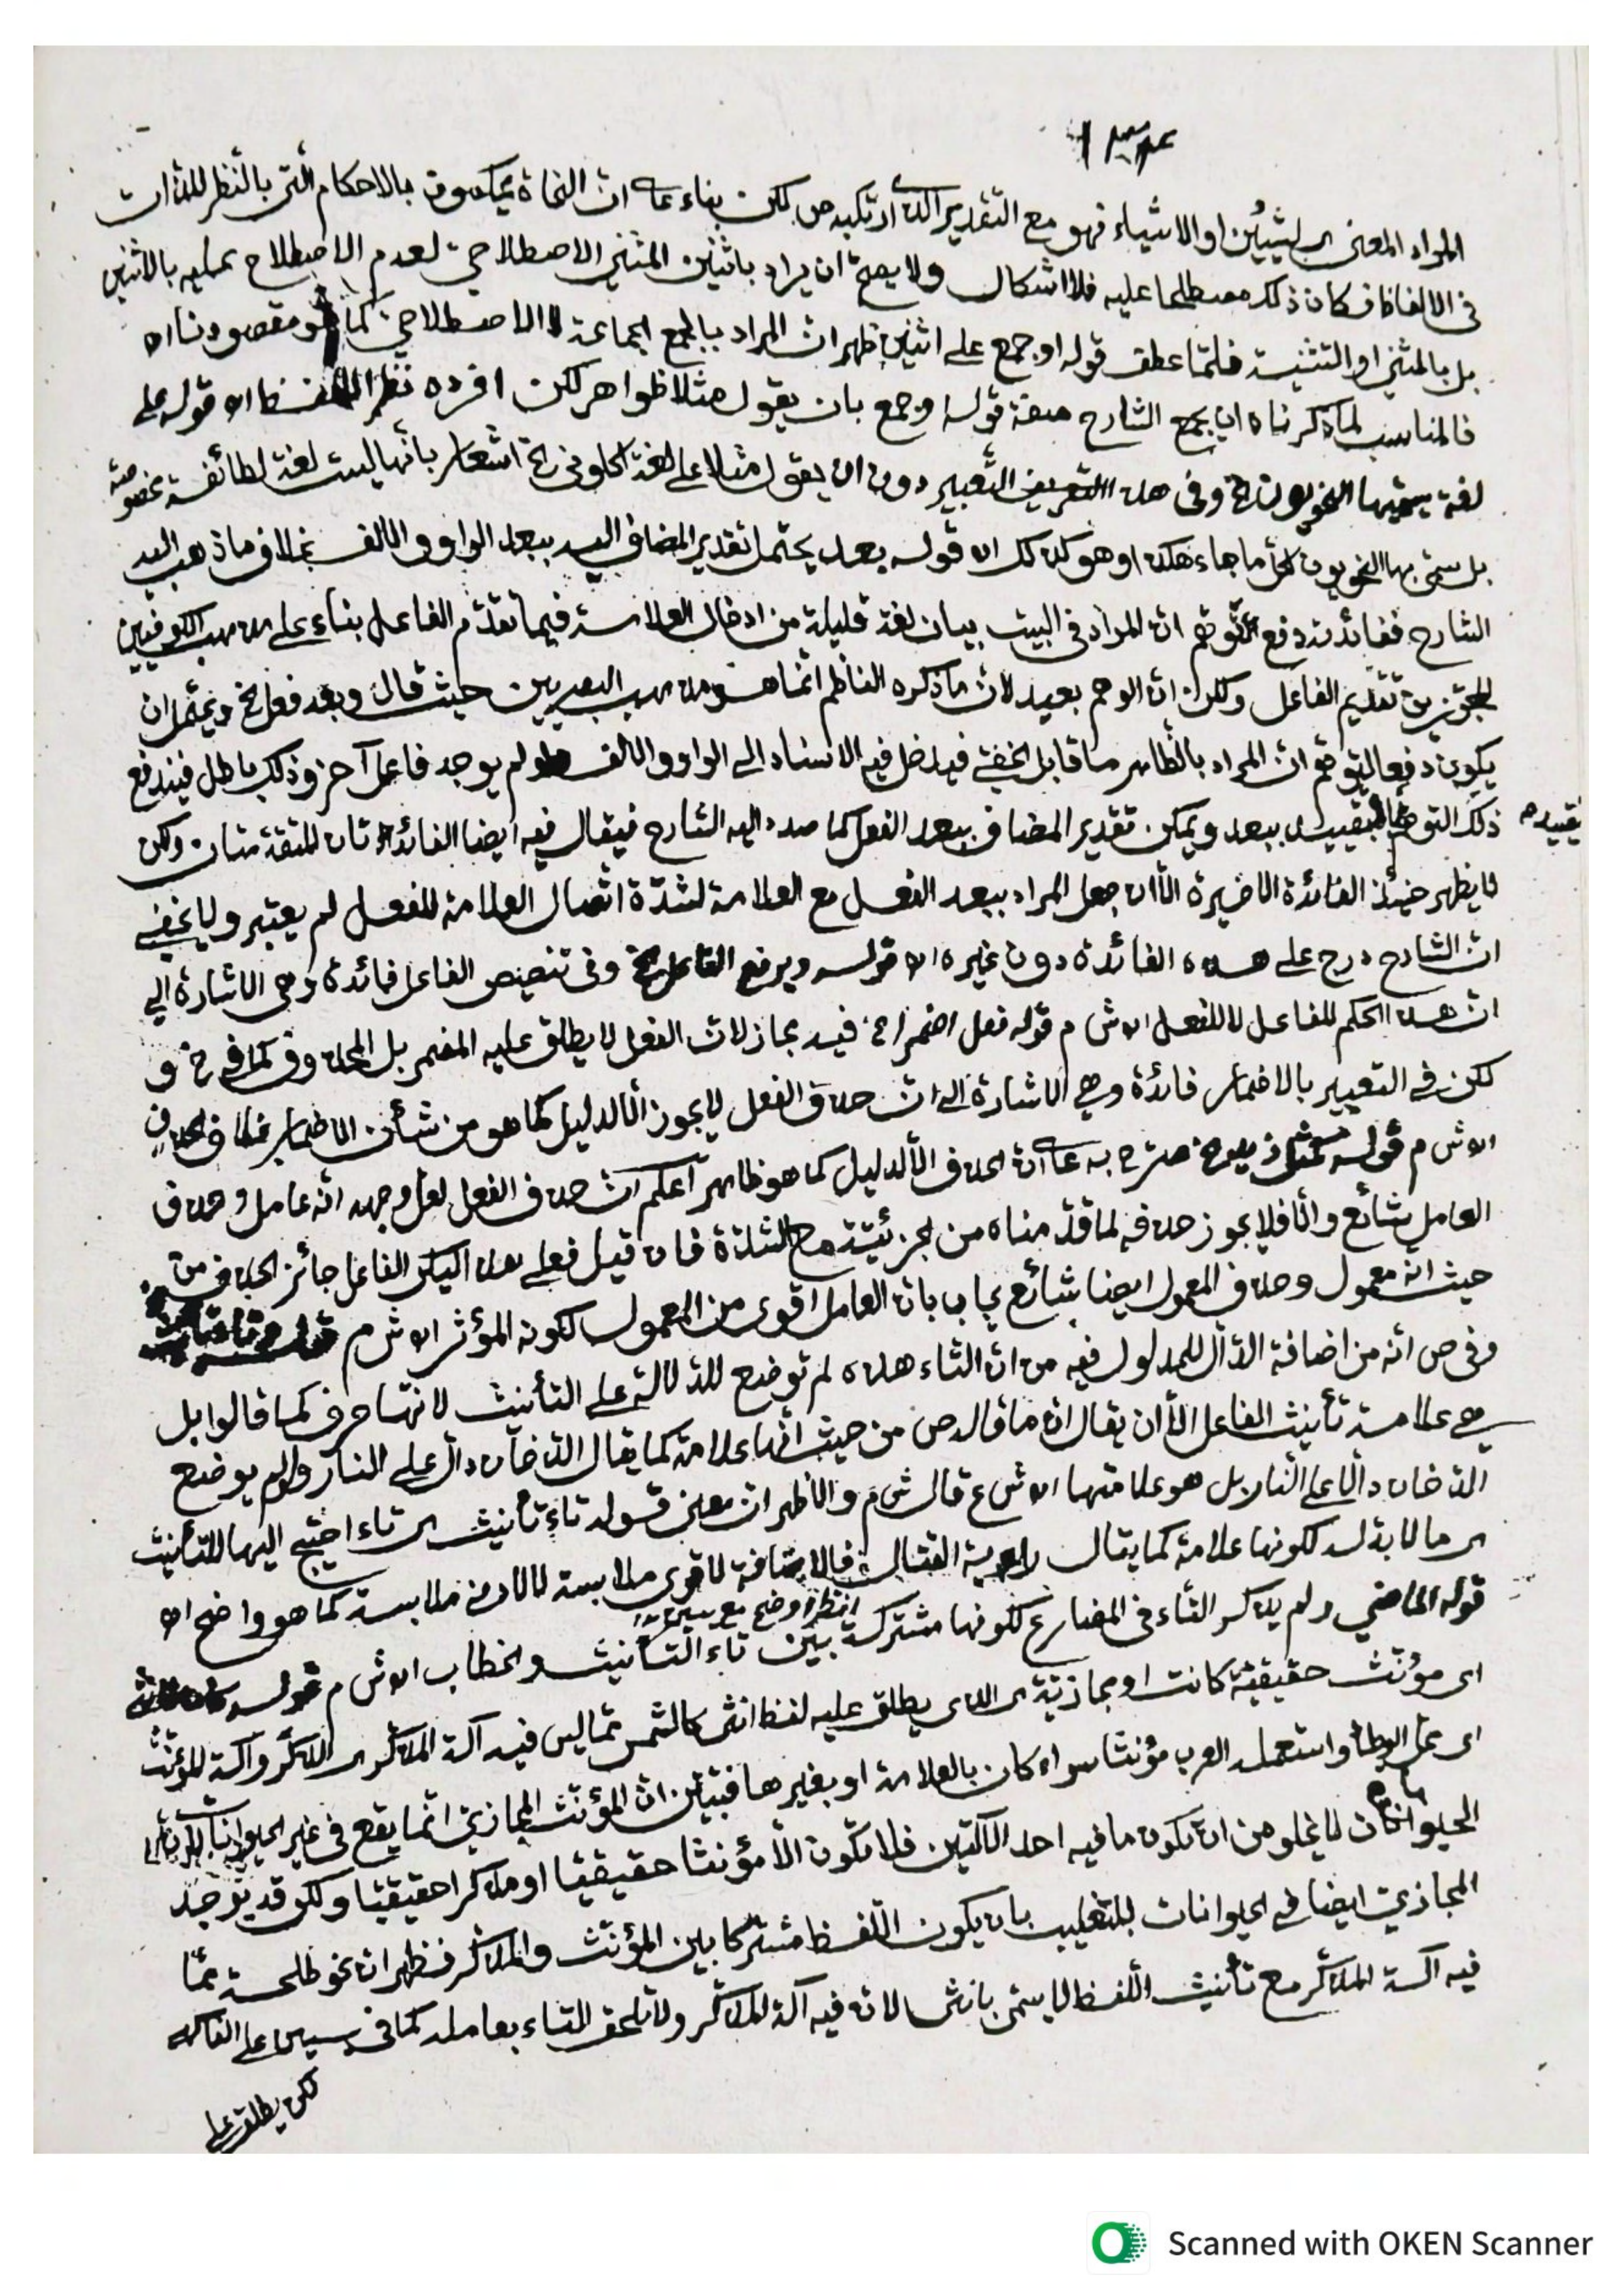 المراد المعنى اى لشيئين او الاشياء فهو مع التقدير الذى ارتكبه ص لكن بناء على ان النحاة يحكمون بالاحكام التى بالنظر للذات
فى الالفاظ فكان ذلك مصطلحا عليه فلا اشكال ولا يصح ان يراد باثنين المثنى الاصطلاحى لعدم الاصطلاح عليه بالاثنين
بل بالمثنى او التثنية فلما عطف قوله او جمع على اثنين ظهر ان المراد بالجمع الجماعة لا الاصطلاحى كما هو مقصودنا اه
فالمناسب لما ذكرناه ان يجمع الشارح صفة قوله او جمع بان يقول مثلا ظواهر لكن افرده نظرا للفظ اه قوله على
لغة يسميها النحويون الخ وفى هذا التعبير دون ان يقول مثلا على لغة اكلونى الخ اشعار بأنها ليست لغة لطائفة مخصوصة
بل سمى بها النحويون لكل ما جاء هكذا وهو كذلك اه قوله بعد يحتمل تقدير المضاف اليه ببعد الواو والالف بخلاف ما ذهب اليه
الشارح ففائدته دفع توهم ان المراد فى البيت بيان لغة قليلة من ادخال العلامة فيما تقدم الفاعل بناء على مذهب الكوفيين
المجوزين تقديم الفاعل ولكن ان الوهم بعيد لان ما ذكره الناظم انما هو مذهب البصريين حيث قال وبعد فعل الخ ويحتمل ان
يكون دفعا لتوهم ان المراد بالظاهر ما قابل الخفى فيدخل فيه الاسناد الى الواو والالف ولو لم يوجد فاعل آخر وذلك باطل فيندفع
ذلك التوهم بتقييده ببعد ويمكن تقدير المضاف ببعد الفعل كما صدد اليه الشارح فيقال فيه ايضا الفائدتان المتقدمتان ولكن
تقييده
لا يظهر حينئذ الفائدة الاخيرة الا ان جعل المراد ببعد الفعل مع العلامة لشدة اتصال العلامة للفعل لم يعتبر ولا يخفى
ان الشارح درج على هذه الفائدة دون غيره اه قوله ويرفع الفاعل الخ وفى تخصيص الفاعل فائدة وهى الاشارة الى
ان هذا الحكم للفاعل لا للفعل اه ش م قوله فعل اضمرا الخ فيه مجاز لان الفعل لا يطلق عليه المضمر بل المحذوف كما فى خ و
لكن فى التعبير بالاضمار فائدة وهى الاشارة الى ان حذف الفعل لا يجوز الا لدليل كما هو من شأن الاضمار بخلاف الحذف
اه ش م قوله كمثل زيد الخ صرح به على ان الحذف الا لدليل كما هو ظاهر اعلم ان حذف الفعل لعل وجهه انه عامل وحذف
العامل شائع والا فلا يجوز حذفه لما قدمناه من جزئيته مع الشدة فان قيل فعلى هذا ليكن الفاعل جائز الحذف من
حيث انه معمول وحذف المعمول ايضا شائع يجاب بان العامل اقوى من المعمول لكونه المؤثر اه ش م قوله وتاء تأنيث
وفى ص انه من اضافة الدال للمدلول فيه من ان التاء هذه لم توضع للدلالة على التأنيث لانها حرف كما قالوا بل
هى علامة تأنيث الفاعل الا ان يقال ان ما قاله ص من حيث انها علامة كما يقال الدخان دال على النار ولم يوضع
الدخان دالا على النار بل هو علامتها اه ش ع قال ش م والاظهر ان معنى قوله تاء تأنيث اى تاء احتيج اليها للتأنيث
اى ما لا بد له لكونها علامة كما يقال القتال فالاضافة لاقوى ملابسة لا لادنى ملابسة كما هو واضح اه
انظر اوضح مع يس
قوله الماضى ولم يذكر التاء فى المضارع لكونها مشتركة بين تاء التأنيث والخطاب اه ش م قوله كان لأنثى
اى مؤنث حقيقية كانت او مجازية اى الذى يطلق عليه لفظ انثى كالشمس مما ليس فيه آلة المذكر اى الذكر وآلة المؤنث
اى محل الوطأ واستعمله العرب مؤنثا سواء كان بالعلامة او بغيرها فتبين ان المؤنث المجازى انما يقع فى غير الحيوانات
الحيوانات لا يخلو من ان تكون ما فيه احد الآلتين فلا تكون الا مؤنثا حقيقيا او مذكرا حقيقيا ولكن قد يوجد
المجازى ايضا فى الحيوانات للتغليب بان يكون اللفظ مشتركا بين المؤنث والمذكر فظهر ان نحو طلحة مما
فيه آلة المذكر مع تأنيث اللفظ لا يسمى بانثى لان فيه آلة المذكر ولا تلحق التاء بعامله كما فى يس على الفاكهى
لكن يطلق على
Scanned with OKEN Scanner